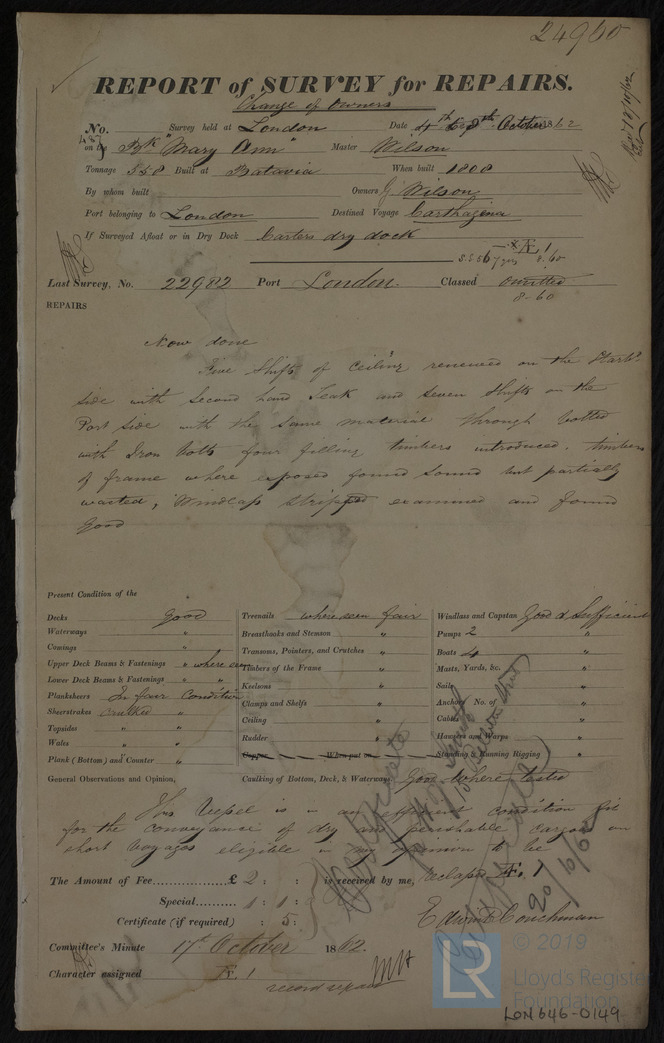 24960
REPORT of SURVEY for REPAIRS.
Change of Owners
No. Survey held at London Date 4th to 8th October 1862
on the Bk "Mary Ann" Master Wilson
Tonnage 558 Built at Batavia When built 1808
By whom built Owners J Wilson
Port belonging to London Destined Voyage Carthagena
If Surveyed Afloat or in Dry Dock Carters dry dock
Last Survey, No. 22982 Port London. Classed omitted
8-60
REPAIRS
Now done
Five Shifts of Ceiling renewed on the Starbd
side with Second hand Teak and seven Shifts on the
Port Side with the same material through bolted
with Iron bolts four filling timbers introduced. timbers
of frame where exposed found Sound but partially
wasted, Windlass stripped examined and found
Good
Present Condition of the
Decks Good
Waterways "
Comings "
Upper Deck Beams & Fastenings " where seen
Lower Deck Beams & Fastenings " "
Planksheers In fair Condition
Sheerstrakes caulked "
Topsides " "
Wales " "
Plank (Bottom) and Counter "
Treenails where seen fair
Breasthooks and Stemson "
Transoms, Pointers, and Crutches "
Timbers of the Frame "
Keelsons "
Clamps and Shelfs "
Ceiling "
Rudder "
Copper When put on
Windlass and Capstan Good & Sufficient
Pumps 2 "
Boats 4 "
Masts, Yards, &c. "
Sails
Anchors No. of
Cables
Hawsers and Warps "
Standing & Running Rigging "
General Observations and Opinion, Caulking of Bottom, Deck, & Waterways Good where tested
This Vessel is in an efficient condition fit
for the conveyance of dry and perishable cargoes on
short voyages eligible in my opinion to be
The Amount of Fee £ 2 : : is received by me, reclassed Æ. 1
Special 1 : 1 :
Certificate (if required) : 5 :
Edwin Couchman
Certificate
20/10/62
Committee's Minute 17th October 1862.
Character assigned Æ. 1
record repairs
LR
© 2019
Lloyd's Register
Foundation
LON646-0149